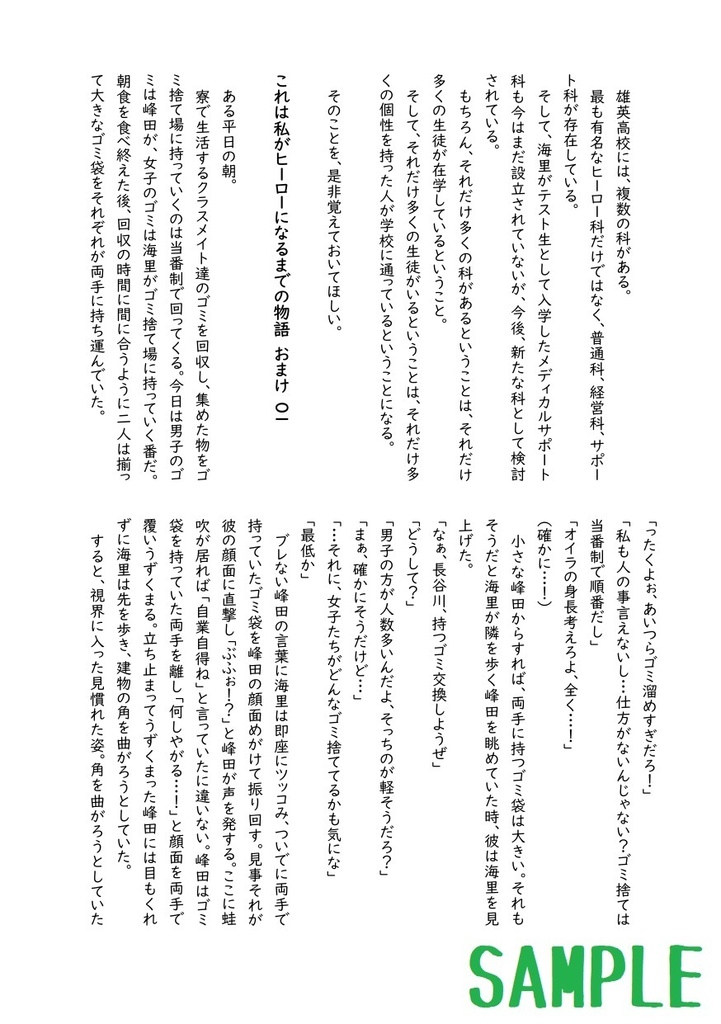 雄英高校には、複数の科がある。
最も有名なヒーロー科だけではなく、普通科、経営科、サポー
ト科が存在している。
そして、海里がテスト生として入学したメディカルサポート
科も今はまだ設立されていないが、今後、新たな科として検討
されている。
もちろん、それだけ多くの科があるということは、それだけ
多くの生徒が在学しているということ。
そして、それだけ多くの生徒がいるということは、それだけ多
くの個性を持った人が学校に通っているということになる。
そのことを、是非覚えておいてほしい。
これは私がヒーローになるまでの物語 おまけ 〇一
ある平日の朝。
寮で生活するクラスメイト達のゴミを回収し、集めた物をゴ
ミ捨て場に持っていくのは当番制で回ってくる。今日は男子のゴ
ミは峰田が、女子のゴミは海里がゴミ捨て場に持っていく番だ。
朝食を食べ終えた後、回収の時間に間に合うように二人は揃っ
て大きなゴミ袋をそれぞれが両手に持ち運んでいた。
「ったくよぉ、あいつらゴミ溜めすぎだろ！」
「私も人の事言えないし…仕方がないんじゃない？ゴミ捨ては
当番制で順番だし」
「オイラの身長考えろよ、全く…！」
（確かに…！）
小さな峰田からすれば、両手に持つゴミ袋は大きい。それも
そうだと海里が隣を歩く峰田を眺めていた時、彼は海里を見
上げた。
「なぁ、長谷川、持つゴミ交換しようぜ」
「どうして？」
「男子の方が人数多いんだよ、そっちのが軽そうだろ？」
「まぁ、確かにそうだけど…」
「…それに、女子たちがどんなゴミ捨ててるかも気にな」
「最低か」
ブレない峰田の言葉に海里は即座にツッコみ、ついでに両手で
持っていたゴミ袋を峰田の顔面めがけて振り回す。見事それが
彼の顔面に直撃し「ぶふぉ！？」と峰田が声を発する。ここに蛙
吹が居れば「自業自得ね」と言っていたに違いない。峰田はゴミ
袋を持っていた両手を離し「何しやがる…！」と顔面を両手で
覆いうずくまる。立ち止まってうずくまった峰田には目もくれ
ずに海里は先を歩き、建物の角を曲がろうとしていた。
すると、視界に入った見慣れた姿。角を曲がろうとしていた
SAMPLE